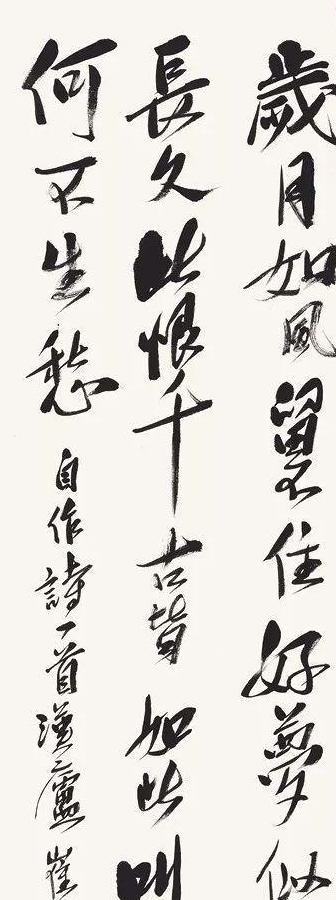 歲月如風留不住好夢似
長久此恨千古皆如此叫
何不生愁
自作詩一首漢廬崔